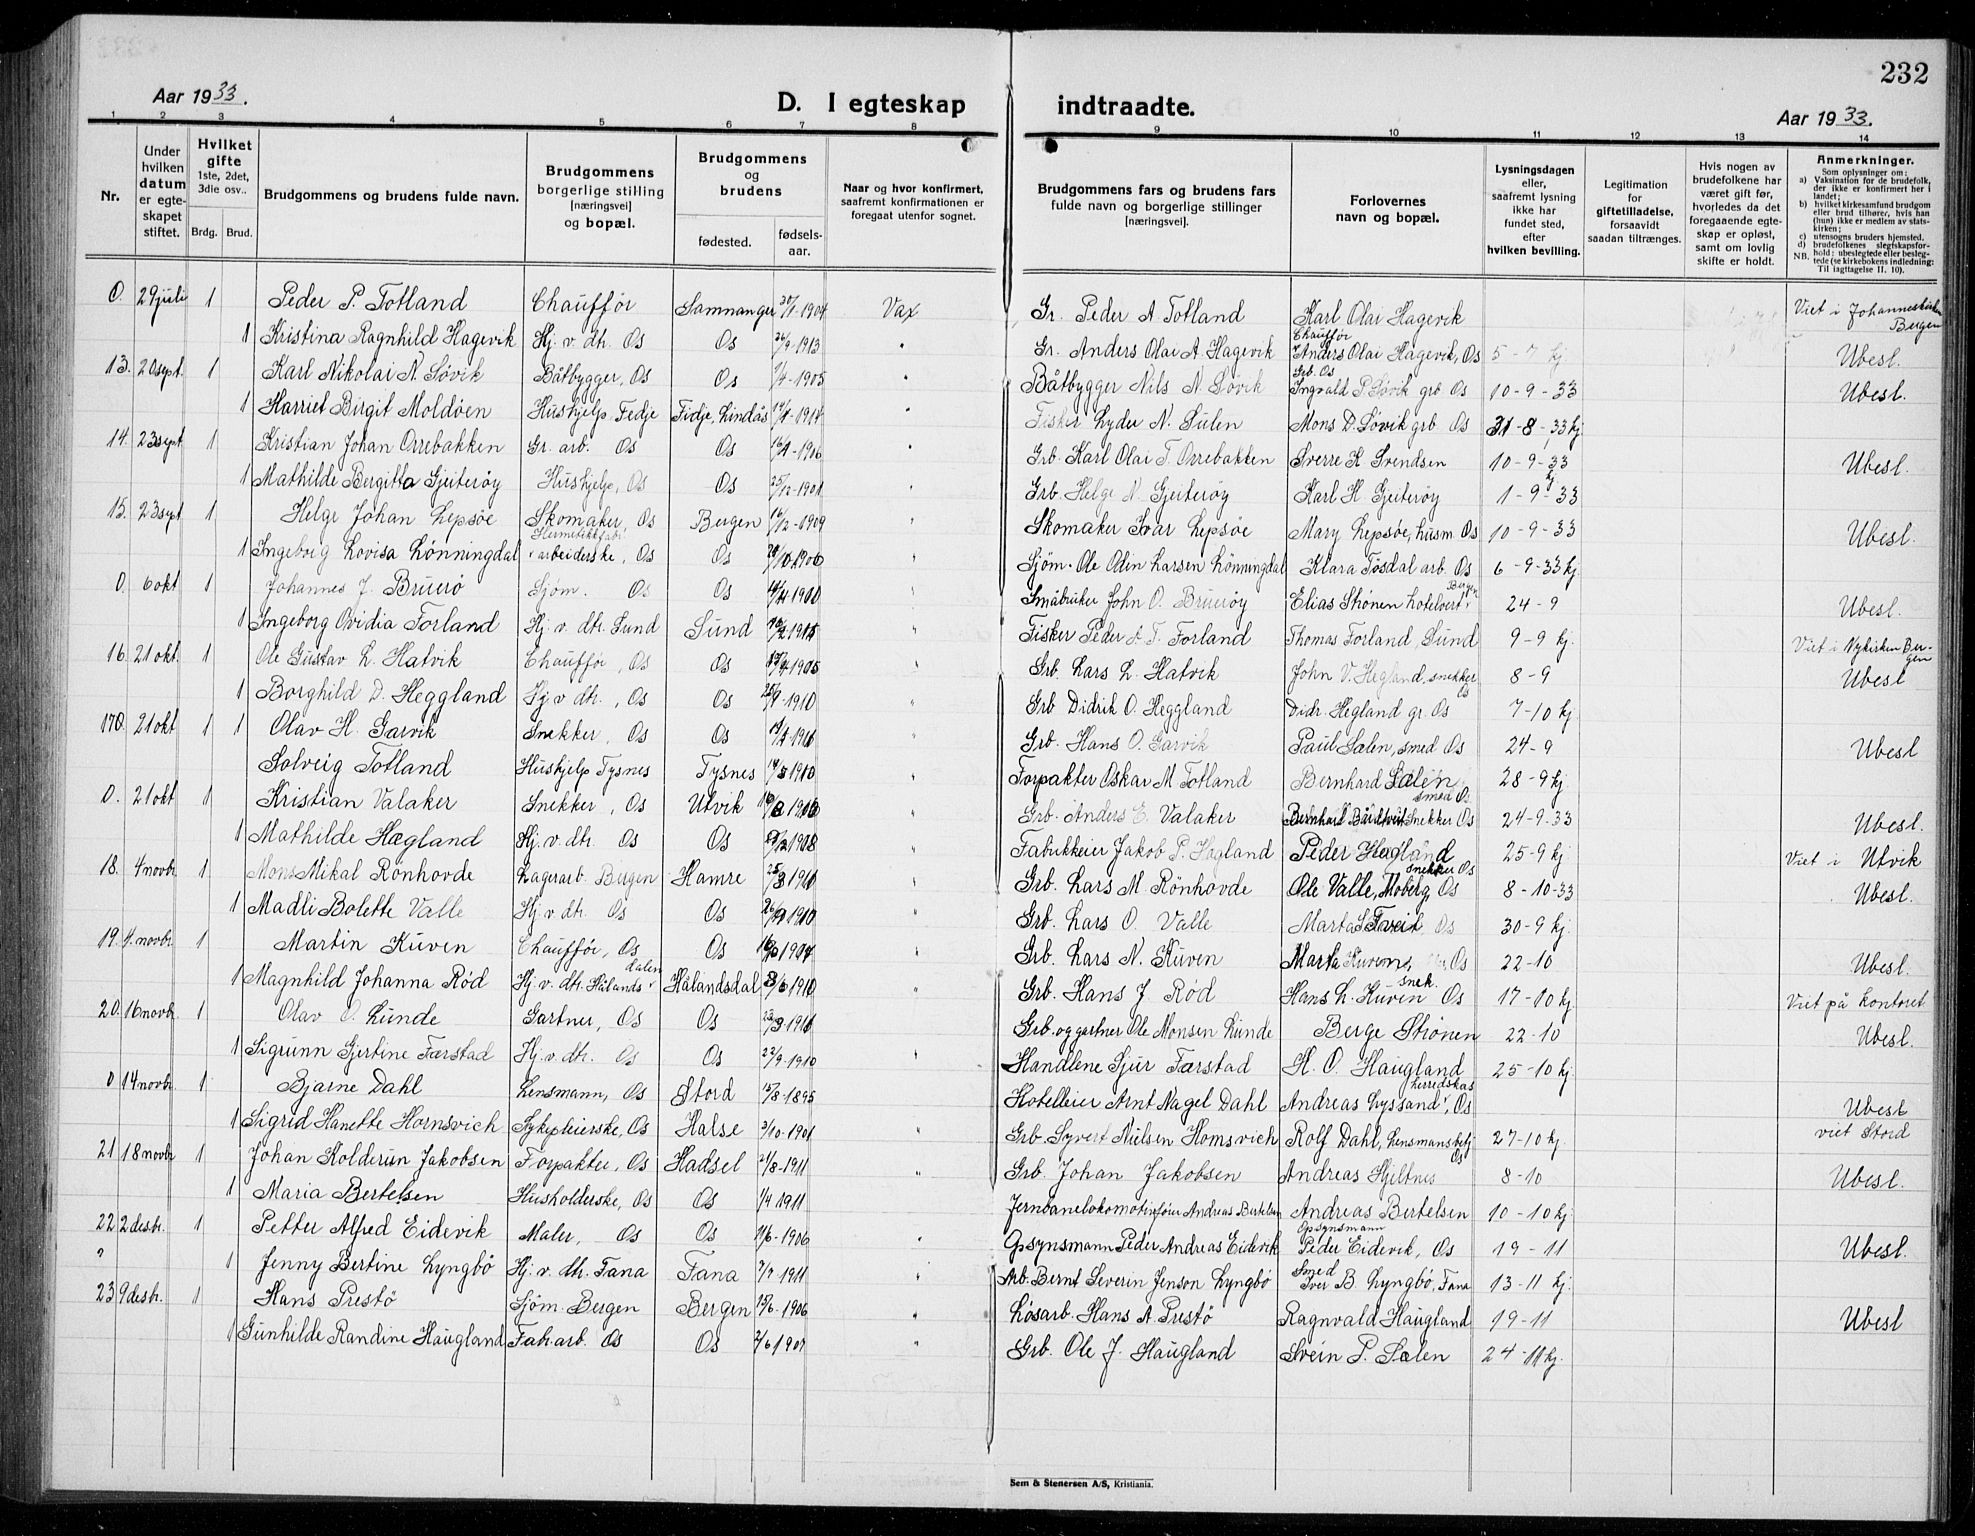 232
Aar 1933.
D. I egteskap indtraadte.
Aar 1933.
1 2 3 4 5 6 7 8 9 10 11 12 13 14
Nr.
Under hvilken datum er egteskapet stiftet.
Hvilket gifte 1ste, 2det, 3die osv..
Brdg. Brud.
Brudgommens og brudens fulde navn.
Brudgommens borgerlige stilling [næringsvei] og bopæl.
Brudgommens og brudens
fødested. fødselsaar.
Naar og hvor konfirmert, saafremt konfirmationen er foregaat utenfor sognet.
Brudgommens fars og brudens fars fulde navn og borgerlige stillinger [næringsvei].
Forlovernes navn og bopæl.
Lysningsdagen eller, saafremt lysning ikke har fundet sted, efter hvilken bevilling.
Legitimation for giftetilladelse, forsaavidt saadan tiltrænges.
Hvis nogen av brudefolkene har været gift før, hvorledes da det foregaaende egteskap er opløst, samt om lovlig skifte er holdt.
Anmerkninger.
Som oplysninger om:
a) Vaksination for de brudefolk, der ikke er konfirmert her i landet;
b) hvilket kirkesamfund brudgom eller brud tilhører, hvis han (hun) ikke er medlem av statskirken;
c) utensogns bruders hjemsted.
d) brudefolkenes slegtskapsforhold; ubeslegtede eller beslegtede (se kirkebokens indledning: Til iagttagelse II. 10).
NB.
0. 29 juli 1 Peder P. Totland Chauffør Samnanger 30/1-1904 Vax Gr. Peder A Totland Karl Olai Hagevik Viet i Johanneskirken Bergen
1 Kristina Ragnhild Hagevik Hj. v. dtr. Os Os 26/9-1913 " Gr. Anders Olai A. Hagevik Chauffør Anders Olai Hagevik, Os 5-7 kj Ubesl.
13. 20 sept. 1 Karl Nikolai N. Søvik Båtbygger, Os Os 1/4-1905 " Båtbygger Nils N. Søvik Grb. Os Ingvald P. Søvik grb Os 10-9-33 Ubesl.
1 Harriet Birgit Moldøen Hushjelp Fedje Fidje, Lindås 1914 " Fisker Lyder N. Sulen Mons D. Søvik grb Os 31-8-33 kj
14. 23 sept 1 Kristian Johan Orrebakken Gr. arb. Os Os 1906 " Grb. Karl Olai T. Orrebakken Sverre K. Svendsen 10-9-33 Ubesl.
1 Mathilde Bergitta Gjeiterøy Hushjelp, Os Os 25/12-1901 " Grb. Helge N. Gjeiterøy Karl H. Gjeiterøy 1-9-33 kj
15. 23 sept 1 Helge Johan Lepsøe Skomaker, Os Bergen 16/12-1909 " Skomaker Ivar Lepsøe Mary Lepsøe, husm. Os 10-9-33 Ubesl.
1 Ingeborg Lovisa Lønningdal Hermetikkfabr. arbeiderske, Os Os 1906 " Sjøm. Ole Odin Larsen Lønningdal Klara Tøsdal arb. Os 6-9-33 kj
0. 6 okt 1 Johannes J. Bruerø Sjøm. Os Os 1900 " Småbruker John O. Bruerøy Elias Strønen hotelvert Bergen 24-9 Ubesl.
1 Ingeborg Ovidia Forland Hj. v. dtr. Sund Sund " Fisker Peder A. T. Forland Thomas Forland, Sund 9-9 kj. Viet i Nykirken Bergen
16. 21 okt. 1 Ole Gustav L. Hatvik Chauffør, Os Os 1905 " Grb. Lars L. Hatvik John V. Hegland, snekker Os 8-9 Ubesl
1 Borghild D. Heggland Hj v dtr., Os Os 1910 " Grb Didrik O. Heggland Didr. Hegland gr. Os 7-10 kj.
170. 21 okt 1 1 Olav H. Garvik Snekker, Os Os " Grb. Hans O. Garvik Paul Sælen, smed Os 24-9 Ubesl
Solveig Totland Hushjelp Tysnes Tysnes 1910 " Forpakter Oskar M Totland Bernhard Sælen smed Os 28-9 kj.
0. 21 okt 1 Kristian Valaker Snekker, Os Utvik " Grb. Anders E. Valaker Snekker Os 24-9-33 Ubesl.
1 Mathilde Hægland Hj. v. dtr. Os Os 1908 " Fabrikkeier Jakob P. Hagland Peder Hagland snekker Os 25-9 kj Viet i Utvik
18. 4 novbr 1 Mons Mikal Rönhovde Lagerarb. Bergen Hamre " Grb. Lars M. Rönhovde Ole Valle, Moberg, Os 8-10-33 Ubesl.
1 Madli Bolette Valle Hj. v. dtr. Os Os 1910 " Grb. Lars O. Valle Marta S Tveit Os 30-9 kj.
19. 4. novbr. 1 Martin Kuven Chauffør, Os Os 1904 " Grb. Lars N. Kuven Marta Kuven, Os 22-10 Ubesl.
1 Magnhild Johanna Rød Hj. v. dtr. Hålandsdalen Hålandsdal 1910 " Grb. Hans J. Rød Hans L. Kuven snek. Os 17-10 kj. Viet på kontoret
20. 16 novbr. 1 Olav O. Lunde Gartner, Os Os Grb. og gartner Ole Monsen Lunde Berge Strønen 22-10 Ubesl.
1 Sigrunn Gjertine Færstad Hj. v. dtr. Os Os 22/9-1910 " Handlene Sjur Færstad H. O. Haugland 25-10 kj.
0 14 novbr 1 Bjarne Dahl Lensmann, Os Stord 15/8-1895 Hotelleier Arnt Nagel Dahl Andreas Lyssand herredskas. Os Ubesl
1 Sigrid Hanette Hornsvich Sykepleierske, Os Halse 3/10-1901 " Grb. Syvert Nielsen Hornsvich Rolf Dahl, Lensmansbetj Os 27-10 kj. viet Stord
21 18 novbr 1 Johan Kolderun Jakobsen Forpakter, Os Hadsel 21/8-1911 " Grb. Johan Jakobsen Andreas Hjeltnes 8-10 Ubesl.
1 Maria Bertelsen Husholderske, Os Os 1/4 1911 Jernbanelokomotivfører Andreas Bertelsen Andreas Bertelsen 10-10 kj.
22 2 desbr. 1 Petter Alfred Eidevik Maler, Os Os 1906 " Opsynsmann Peder Andreas Eidevik Opsynsmann Peder Eidevik, Os 19-11 Ubesl.
? 1 Jenny Bertine Lyngbö Hj. v. dtr. Fana Fana 1911 " Arb. Bernt Severin Jenson Lyngbö Smed Iver B Lyngbö, Fana 13-11 kj.
23 9 desbr. 1 Hans Prestö Sjøm. Bergen Bergen 15/6-1906 " Løsarb. Hans A. Prestö Ragnvald Haugland 19-11 Ubesl
1 Gunhilde Randine Haugland Fab. arb. Os Os 2/6 1907 " Grb. Ole J. Haugland Svein P. Sælen 24-11 kj.
Sem & Stenersen A/S, Kristiania.